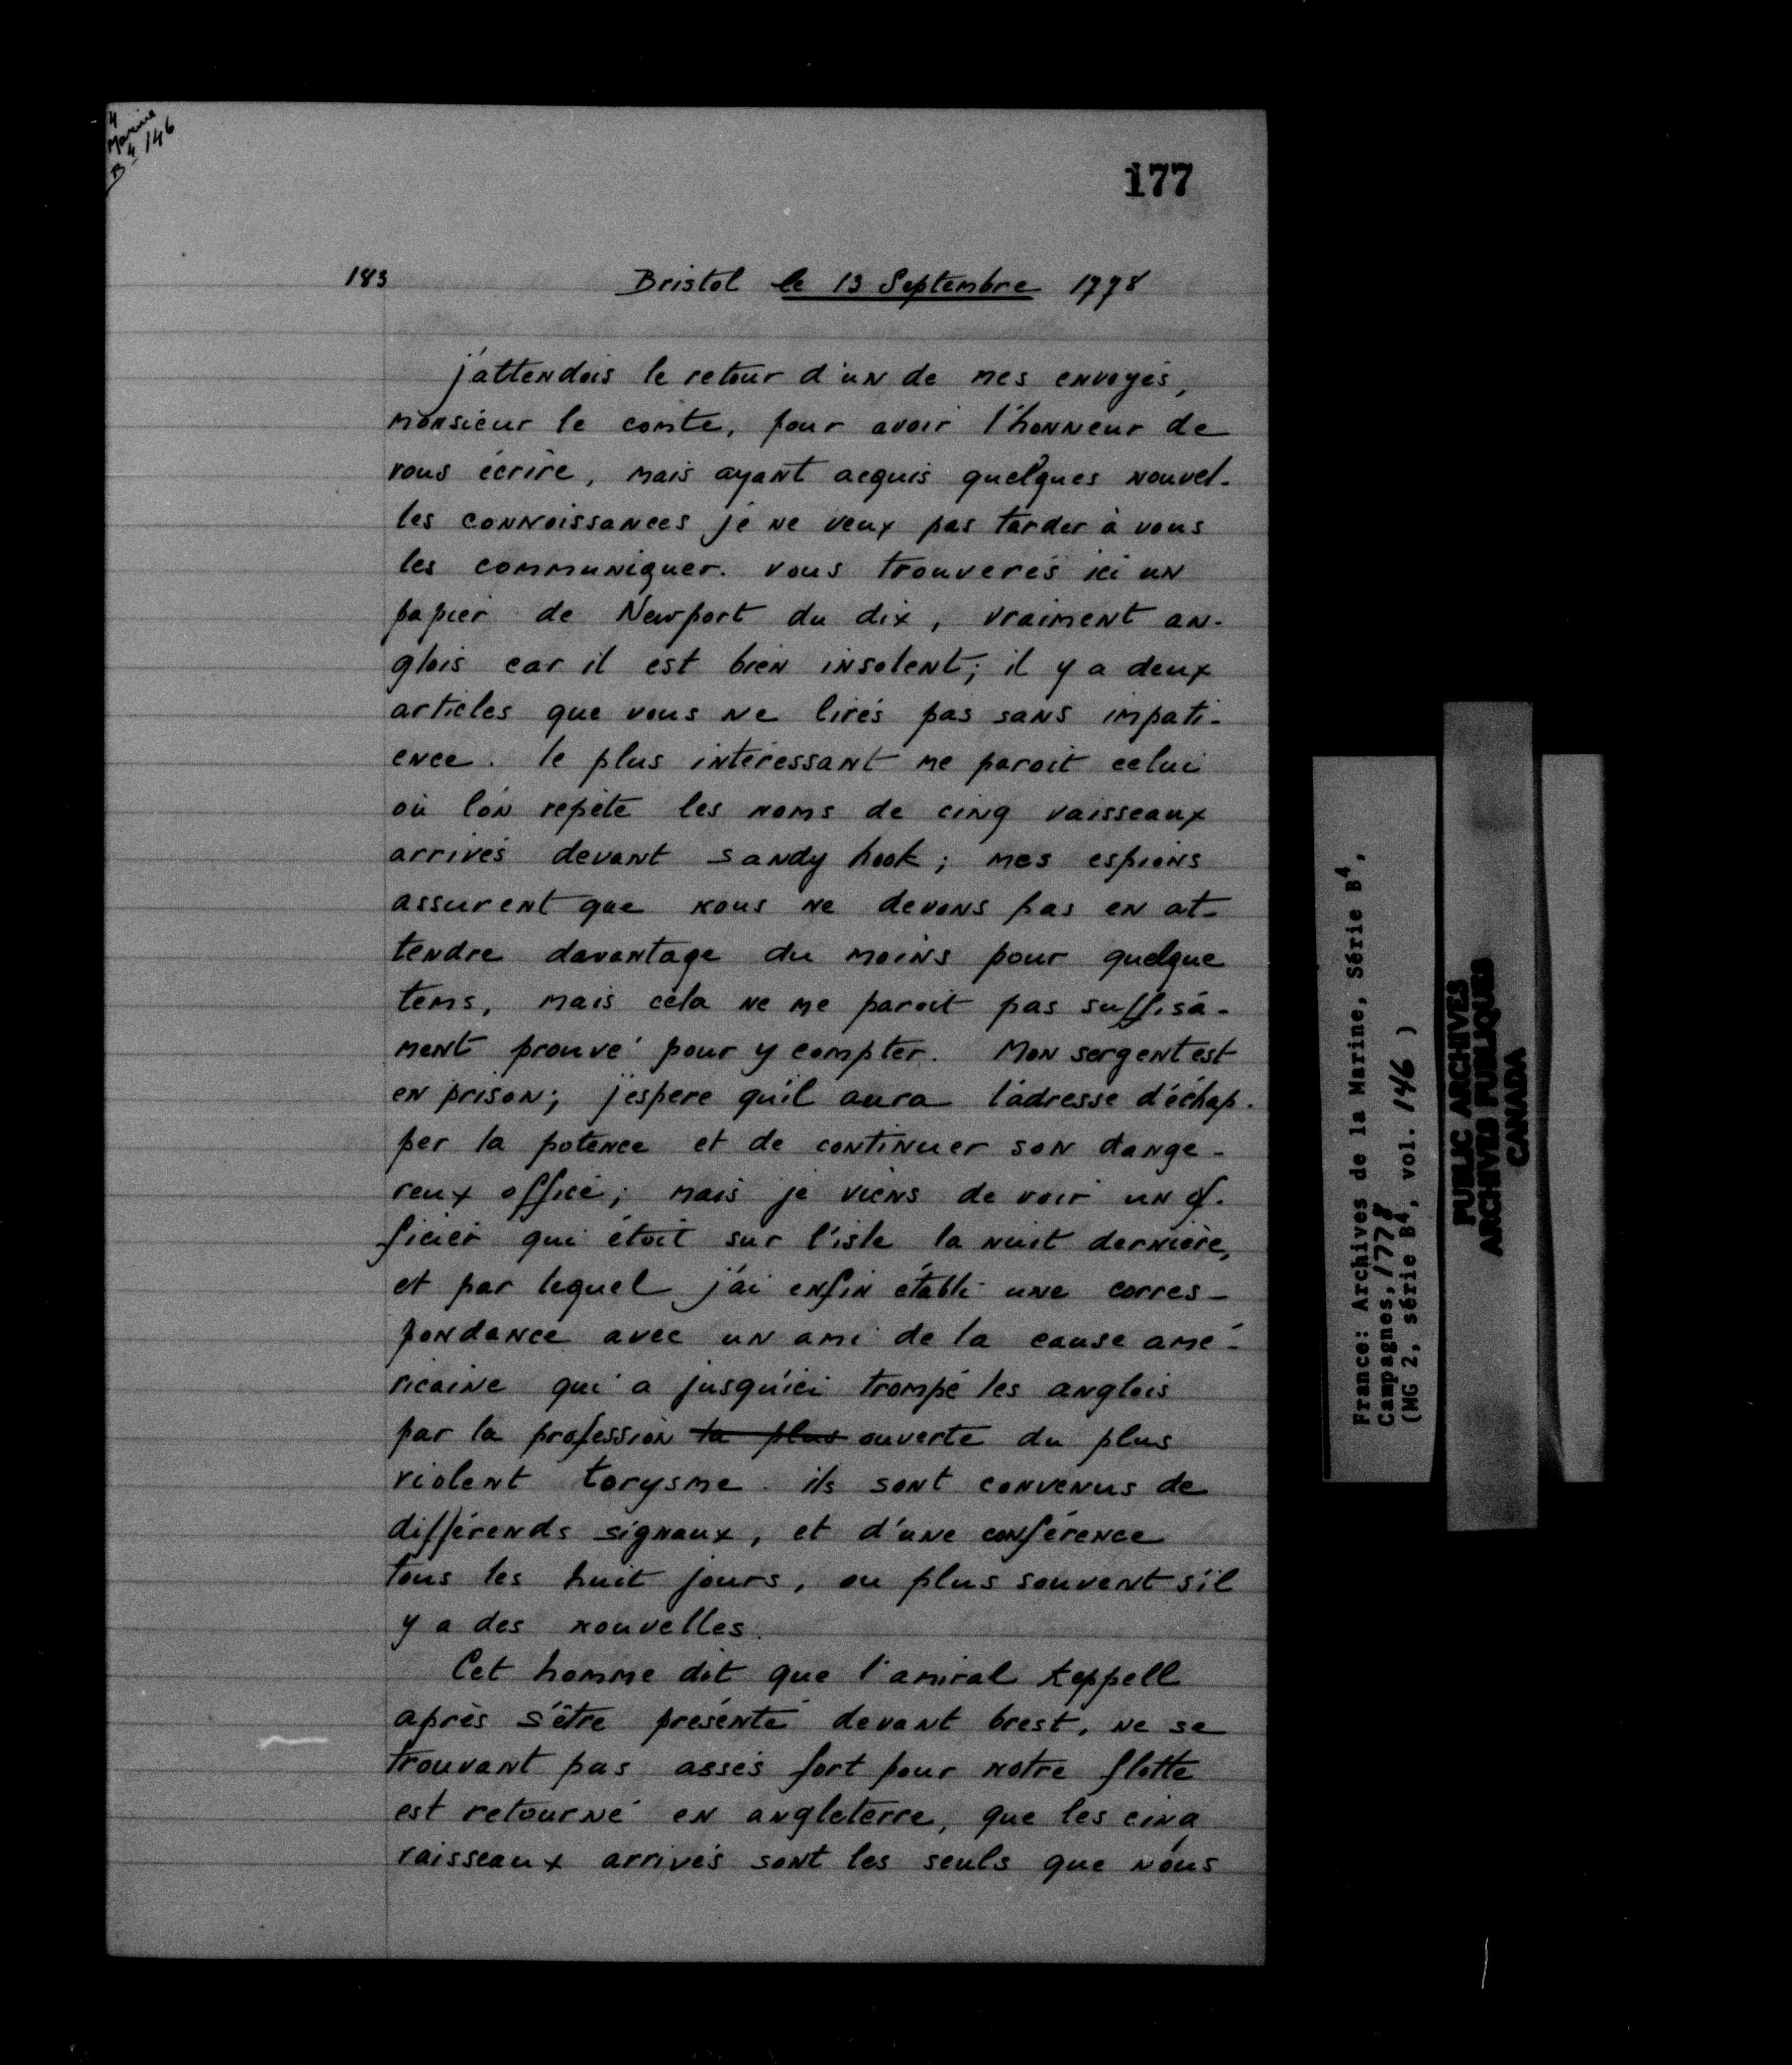 4
Marine
B4 146
177
183
Bristol le 13 Septembre 1778
j'attendois le retour d'un de mes envoyés,
monsieur le comte, pour avoir l'honneur de
vous écrire, mais ayant acquis quelques nouvel-
les connoissances je ne veux pas tarder à vous
les communiquer. vous trouverés ici un
papier de Newport du dix, vraiment an-
glois car il est bien insolent; il y a deux
articles que vous ne lirés pas sans impati-
ence. le plus intéressant me paroit celui
où l'on repète les noms de cinq vaisseaux
arrivés devant sandy hook; mes espions
assurent que nous ne devons pas en at-
tendre davantage du moins pour quelque
tems, mais cela ne me paroit pas suffisa-
ment prouvé pour y compter. Mon sergent est
en prison; j'espere qu'il aura l'adresse d'échap-
per la potence et de continuer son dange-
reux office; mais je viens de voir un of-
ficier qui étoit sur l'isle la nuit dernière,
et par lequel j'ai enfin établi une corres-
pondance avec un ami de la cause amé-
ricaine qui a jusqu'ici trompé les anglois
par la profession la plus ouverte du plus
violent torysme. ils sont convenus de
différends signaux, et d'une conférence
tous les huit jours, ou plus souvent s'il
y a des nouvelles.
Cet homme dit que l'amiral Keppell
après s'être présenté devant brest, ne se
trouvant pas assés fort pour notre flotte
est retourné en angleterre, que les cinq
vaisseaux arrivés sont les seuls que nous
France: Archives de la Marine, Série B4,
Campagnes, 1778
(MG 2, série B4, vol. 146 )
PUBLIC ARCHIVES
ARCHIVES PUBLIQUES
CANADA